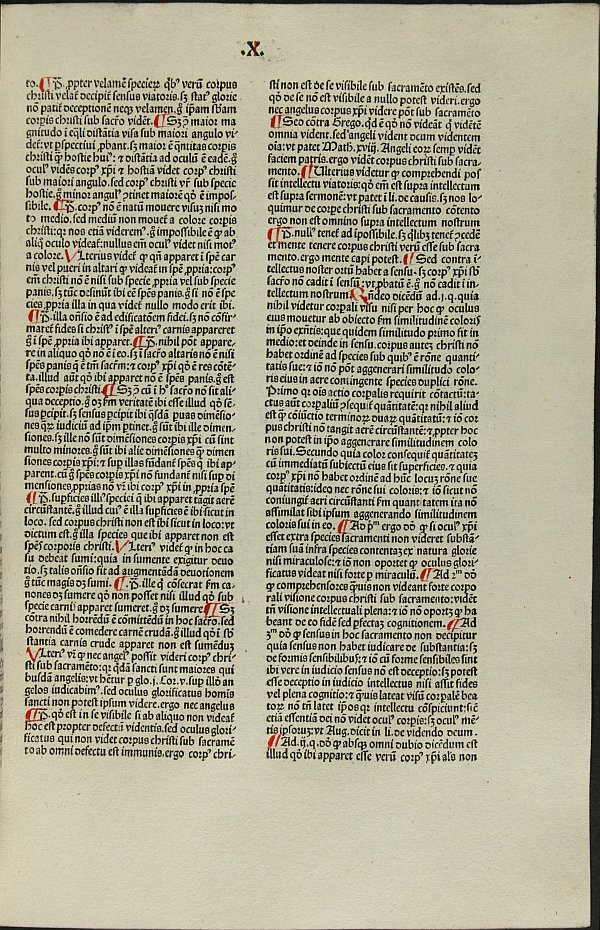 .X.
to. ¶ P. ꝓpter velamē specierꝝ q̄bꝰ verū corpus
christi velat̉ decipit̉ sensus viatoris. sꝫ statꝰ glorie
nō patit̉ deceptionē neqꝫ velamen. g̊ ipsam sb̄am
corpis christi sub sacr̄o vidēt. ¶ Sꝫ ↄ̄ maior ma
gnitudo i eq̄li distātia visa sub maiori angulo vi
det̉: vt ꝑspectiui ꝓbant. sꝫ maior ē q̄ntitas corpis
christi q̄ꝫ hostie huiꝰ: ⁊ distātia ad oculū ē eadē. g̊
oculꝰ vidēs corpꝰ xp̄i ⁊ hostiā videt corpꝰ christi
sub maiori angulo. sed corpꝰ christi vr̄ sub specie
hostie. g̊ minor angulꝰ ꝯtinet maiorē qd̄ ē impos-
sibile. ¶ P. corpꝰ nō ē natū mouere visuꝫ nisi mo
to medio. sed mediū non mouet̉ a colore corpis
christi: qꝛ nos etiā videremꝰ. g̊ impossibile ē ꝙ ab
aliq̊ oculo videat̉: nullus em̄ oculꝰ videt nisi motꝰ
a colore. Ulterius videt̉ ꝙ qn̄ apparet i spē car
nis vel pueri in altari ꝙ videat̉ in spē ꝓpria: corpꝰ em̄
christi nō ē nisi sub specie ꝓpria vel sub specie
panis. sꝫ tūc desinūt ibi eē spēs panis. g̊ si nō ē spe
cies ꝓpria illa in qua videt̉ nullo modo erit ibi.
¶ P. illa oñsio ē ad edificatōem fidei. sꝫ nō cōfir
maret̉ fides si christꝰ i spē alteriꝰ carnis appareret
g̊ i spē ꝓpria ibi apparet. ¶ P. nihil pōt appare-
re in aliquo qd̄ nō ē i eo. sꝫ i sacr̄o altaris nō ē nisi
spēs panis q̄ ē tm̄ sacrm̄: ⁊ corpꝰ xp̄i qd̄ ē res cōtē-
ta. illud aūt qd̄ ibi apparet nō ē spēs panis. g̊ est
spēs corpis christi. ¶ Sꝫ ↄ̄ cū i hꝰ sacr̄o nō sit ali-
qua deceptio. g̊ oꝫ ẜm veritatē ibi esse illud qd̄ sē-
sus ꝑcipit. sꝫ sensus ꝑcipit ibi q̄sdā ꝑuas dimēsio-
nes qꝝ iudiciū ad ip̄m ꝑtinet. g̊ sūt ibi ille dimen-
siones. sꝫ ille nō sūt dimēsiones corpis xp̄i cū sint
multo minores. g̊ sūt ibi alie dimēsiones q̄ꝫ dimen
siones corpis xp̄i: ⁊ sup illas fūdant̉ spēs q̄ ibi ap
parent. cū g̊ spēs corpis xp̄i nō fundant̉ nisi sup di
mensiones ꝓprias nō vr̄ ibi corpꝰ xp̄i in ꝓpria spē
¶ P. supficies illiꝰ speciei q̄ ibi apparet tāgit aerē
circūstātē. g̊ illud cuiꝰ ē illa supficies ē ibi sicut in
loco. sed corpus christi non est ibi sicut in loco: vt
dictum est. g̊ illa species que ibi apparet non est
spēs corporis christi. Ulteriꝰ videt̉ ꝙ in hoc ca
su debeat sumi: quia in sumente exigitur deuo
tio. sꝫ talis oñsio fit ad augmentādā deuotionem
g̊ tūc magis dꝫ sumi. ¶ P. ille q̄ cōsecrat ẜm ca-
nones dꝫ sumere qd̄ non posset nisi illud qd̄ sub
specie carni apparet sumeret. g̊ dꝫ sumere ¶ Sꝫ
cōtra nihil horrēdū ē cōmittēdū in hoc sacr̄o. sed
horrendū ē comedere carnē crudā. g̊ illud qd̄ i sb̄
stantia carnis crude apparet non est sumēduꝫ
Ulteriꝰ vr̄ ꝙ nec angelꝰ possit videri corpꝰ chri-
sti sub sacramēto: qꝛ q̄dā sancti sunt maiores qui
busdā angelis: vt hēt̉ur ꝑ glo. j. Cor. v. sup illd̄ an
gelos iudicabimꝰ. sed oculus glorificatus homīs
sancti non potest ipsum videre. ergo nec angelus
¶ P. qd̄ est in se visibile si ab aliquo non videat̉
hoc est propter defectū videntis. sed oculus glori-
ficatus qui non videt corpus christi sub sacramē
to ab omni defectu est immunis. ergo corpꝰ chri-
sti non est de se visibile sub sacramēto existēs. sed
qd̄ de se nō est visibile a nullo potest videri. ergo
nec angelus corpus xp̄i videre pōt sub sacramēto
¶ Sed cōtra Grego. qd̄ ē qd̄ nō videāt q̄ vidētē
omnia vident. sed angeli vident deum videntem
oīa: vt patet Math. xviij. Angeli eorꝝ semp vidēt
faciem patris. ergo vidēt corpus christi sub sacra-
mento. ¶ Ulterius videtur ꝙ comprehendi pos
sit intellectu viatoris: qd̄ em̄ est supra intellectum
est supra sermonē: vt patet i li. de causis. sꝫ nos lo-
quimur de corpe christi sub sacramento cōtento
ergo non est omnino supra intellectum nostrum
¶ P. nullꝰ tenet̉ ad ipossibile. sꝫ q̄libꝫ tenet̉ ꝯcedē
et mente tenere corpus christi verū esse sub sacra
mento. ergo mente capi potest. ¶ Sed contra i-
tellectus noster ortū habet a sensu. sꝫ corpꝰ xp̄i sb̄
sacr̄o nō cadit i sensū: vt ꝓbatū ē. g̊ nō cadit i in-
tellectum nostrum Rn̄deo dicēdū ad. j. q. quia
nihil videtur corpali visu nisi per hoc ꝙ oculus
eius mouetur ab obiecto ẜm similitudinē coloris
in ip̄o exn̄tis: que quidem similitudo primo fit in
medio: et deinde in sensu. corpus autē christi nō
habet ordinē ad species sub quibꝰ ē rōne quanti-
tatis sue: ⁊ iō nō pōt aggenerari similitudo colo-
ris eius in aere contingente species duplici rōne.
Primo qꝛ ois actio corpalis requirit cōtactū: ta-
ctus aūt corpaliū ꝯsequit̉ quātitatē: qꝛ nihil aliud
est q̄ꝫ cōiūctio terminoꝝ duarꝝ quātitatū: ⁊ iō cor
pus christi nō tangit aerē circūstantē: ⁊ ꝓpter hoc
non potest in ip̄o aggenerare similitudinem colo
ris sui. Secundo quia color consequit̉ quantitatē
cū immediatū subiectū eius sit superficies. ⁊ quia
corpꝰ xp̄i nō habet ordinē ad hūc locuꝫ rōne sue
quātitatis: ideo nec rōne sui coloris: ⁊ iō sicut nō
coniungit̉ aeri circūstanti ẜm quantitatem ita nō
assimilat sibi ipsum aggenerando similitudinem
coloris sui in eo. ¶ Ad pᵐ ergo dd̄ ꝙ si oculꝰ xp̄i
esset extra species sacramenti non videret substā-
tiam suā infra species contentaꝫ ex natura glorie
nisi miraculose: ⁊ iō non oportet ꝙ oculus glori-
ficatus videat nisi forte ꝑ miraculū. ¶ Ad 2ᵐ dd̄
ꝙ comprehensores q̄uis non videant forte corpo
rali visione corpus christi sub sacramento: vidēt
tn̄ visione intellectuali plena: ⁊ iō nō oportꝫ ꝙ ha
beant de eo fidē sed ꝑfectaꝫ cognitionem. ¶ Ad
3ᵐ dd̄ ꝙ sensus in hoc sacramento non decipitur
quia sensus non habet iudicare de substantia: sꝫ
de formis sensibilibꝰ: ⁊ iō cū forme sensibiles sint
ibi vere in iudicio sensus nō est deceptio: sꝫ potest
esse deceptio in iudicio intellectus nisi assit fides
vel plena cognitio: ⁊ q̄uis lateat visū corpalē bea
toꝝ nō tn̄ latet ip̄os qꝛ intellectu cōspiciunt: sic
etiā essentiā dei nō videt oculꝰ corpis: sꝫ oculꝰ mē-
tis ipsoruꝫ: vt Aug. dicit in li. de videndo deum.
¶ Ad. ij. q. dd̄ ꝙ absqꝫ omni dubio dicēdum est
illud qd̄ ibi apparet esse verū corpꝰ xp̄i als̄ non